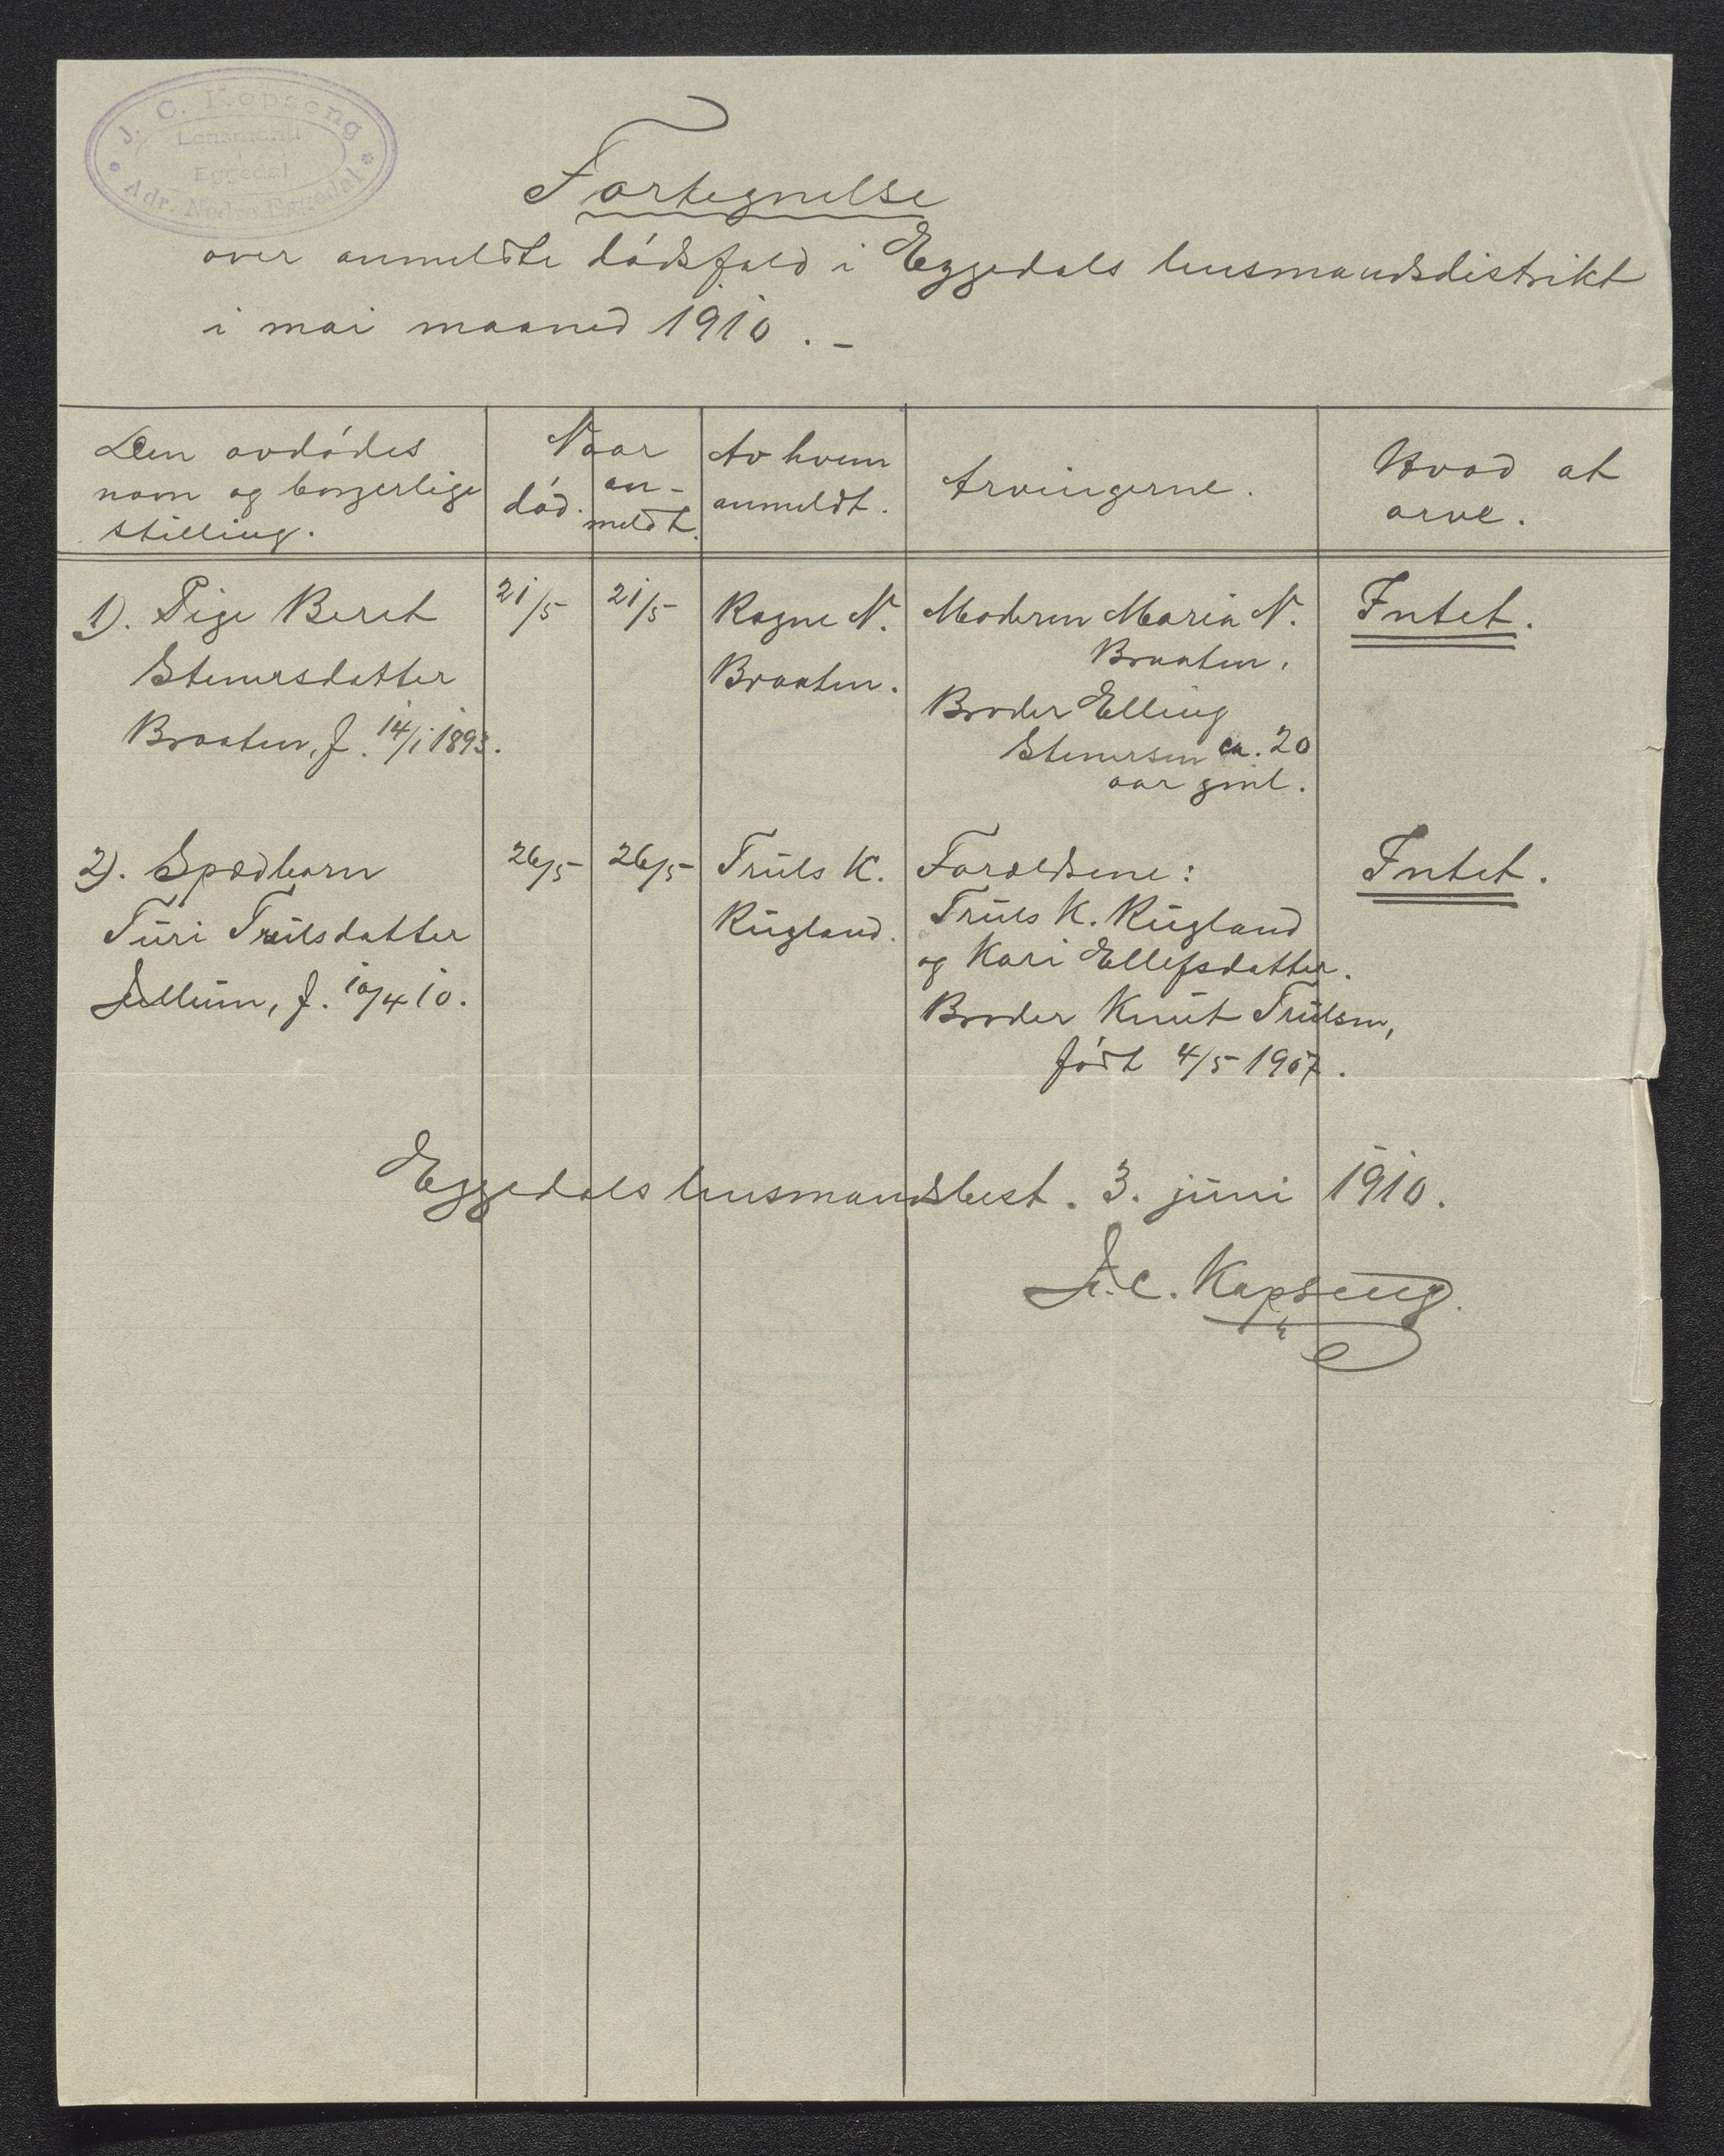 J. C. Kopseng
Lensmand
i
Eggedal
Adr. Nedre Eggedal
Fortegnelse
over anmeldte dödsfald i Eggedals lensmandsdistrikt
i mai maaned 1910. –
Den avdödes
navn og borgerlige
stilling.
Naar
död.
an-
meldt.
Av hvem
anmeldt.
Arvingerne.
Hvad at
arve.
1). Pige Beret
Stenersdatter
Braaten, f. 14/1 1893.
21/5
21/5
Ragne N.
Braaten.
Moderen Maria N.
Braaten.
Broder Elling
Stenersen ca. 20
aar gml.
Intet.
2). Spædbarn
Turi Trulsdatter
Jellum, f. 10/4 10.
26/5
26/5
Truls K.
Rugland.
Forældrene:
Truls K. Rugland
og Kari Ellefsdatter.
Broder Knut Trulsen,
födt 4/5 1907.
Intet.
Eggedals lensmandsbest. 3. juni 1910.
J. C. Kopseng.